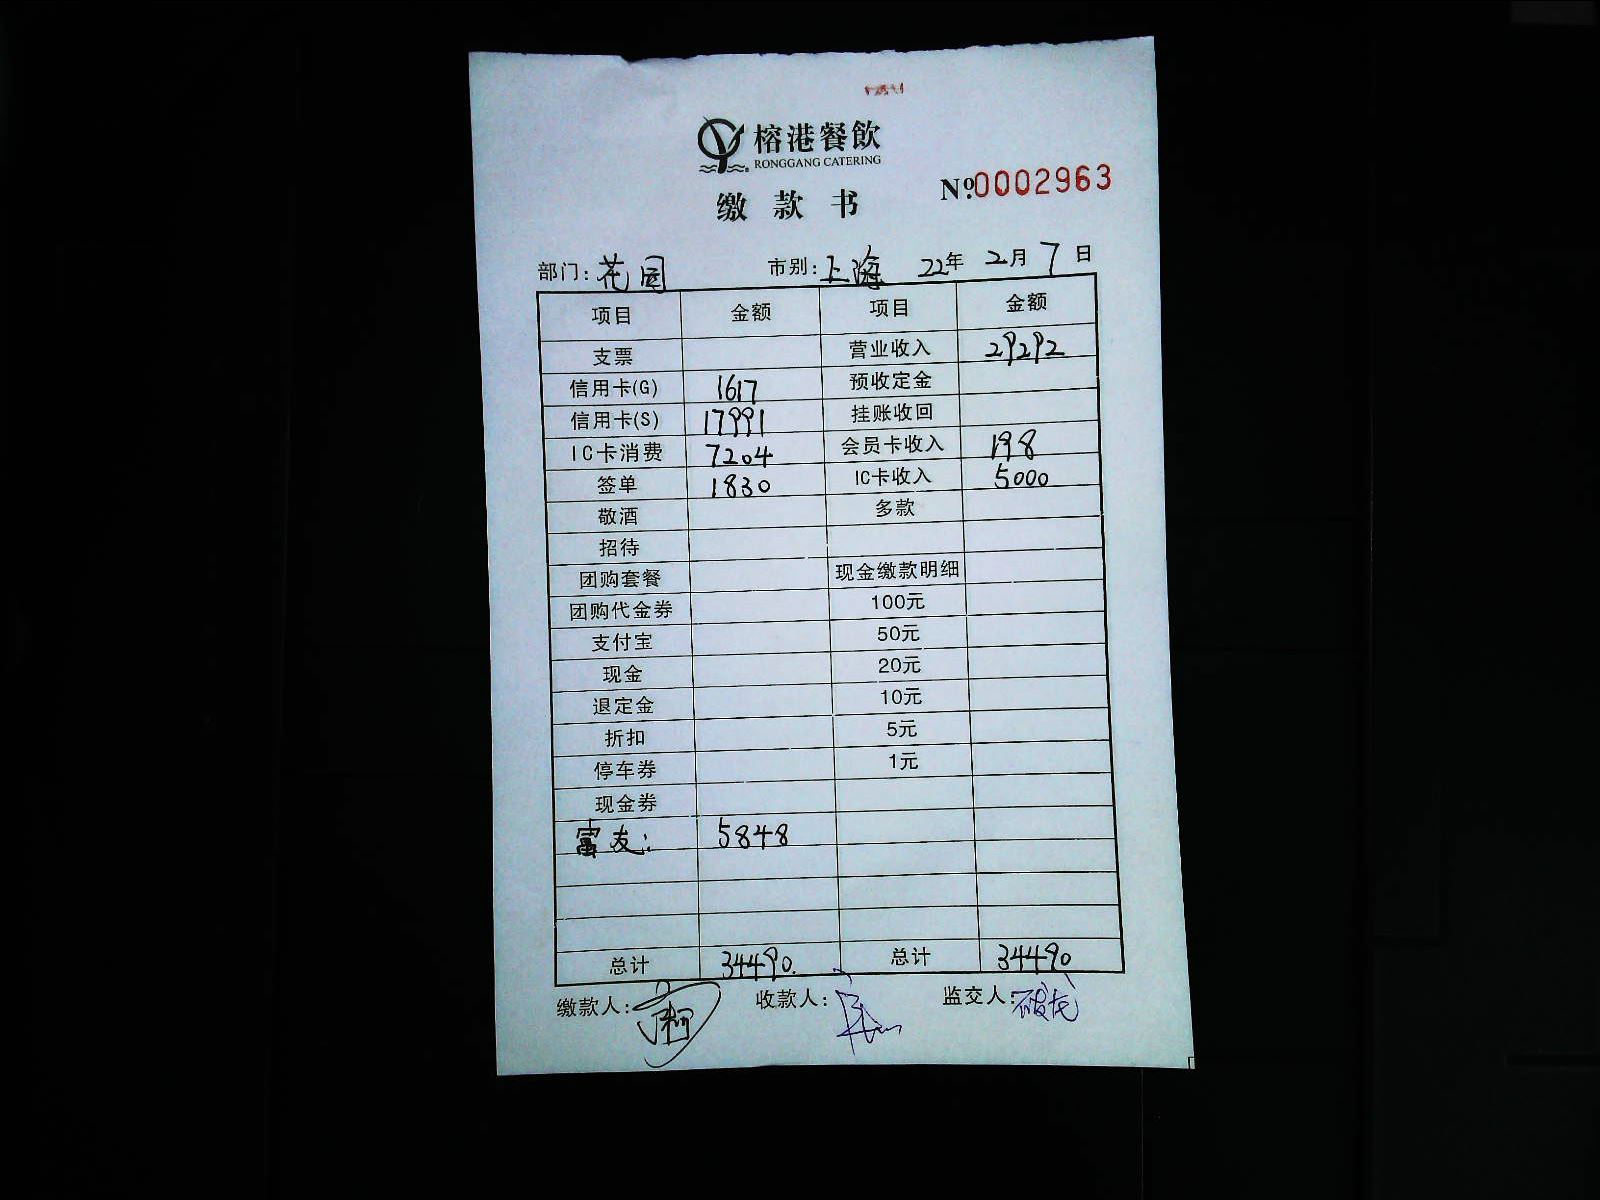 榕港餐飲
RONGGANG CATERING
缴款书
№0002963
部门：花园 市别：上海 22年 2月 7日
项目 金额 项目 金额
支票 营业收入 29292
信用卡(G) 1617 预收定金
信用卡(S) 17991 挂账收回
IC卡消费 7204 会员卡收入 198
签单 1830 IC卡收入 5000
敬酒 多款
招待
团购套餐 现金缴款明细
团购代金券 100元
支付宝 50元
现金 20元
退定金 10元
折扣 5元
停车券 1元
现金券
富友： 5848
总计 34490. 总计 34490
缴款人： 收款人： 监交人：